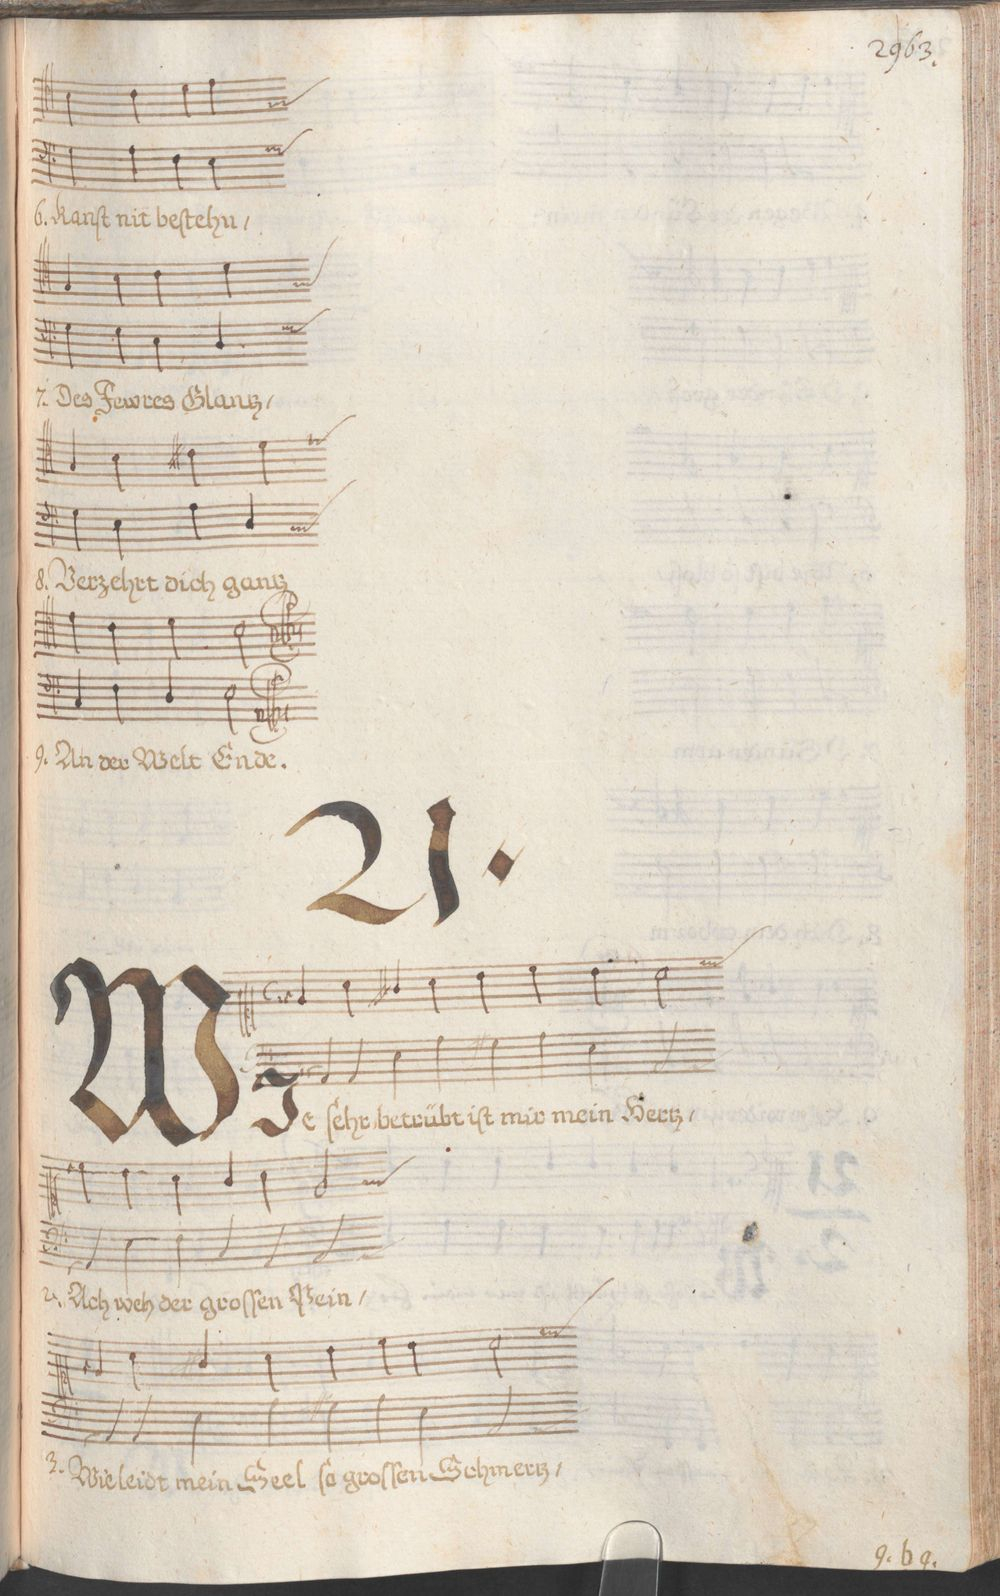 2963.
6. Kanst nit bestehn /
7. Des Fewres Glantz /
8. Verzehrt dich gantz
9. An der Welt Ende.
21.
WIe sehr betrübt ist mir mein Hertz /
2. Ach weh der grossen Pein /
3. Wie leidt mein Seel so grossen Schmertz /
9. b 9.